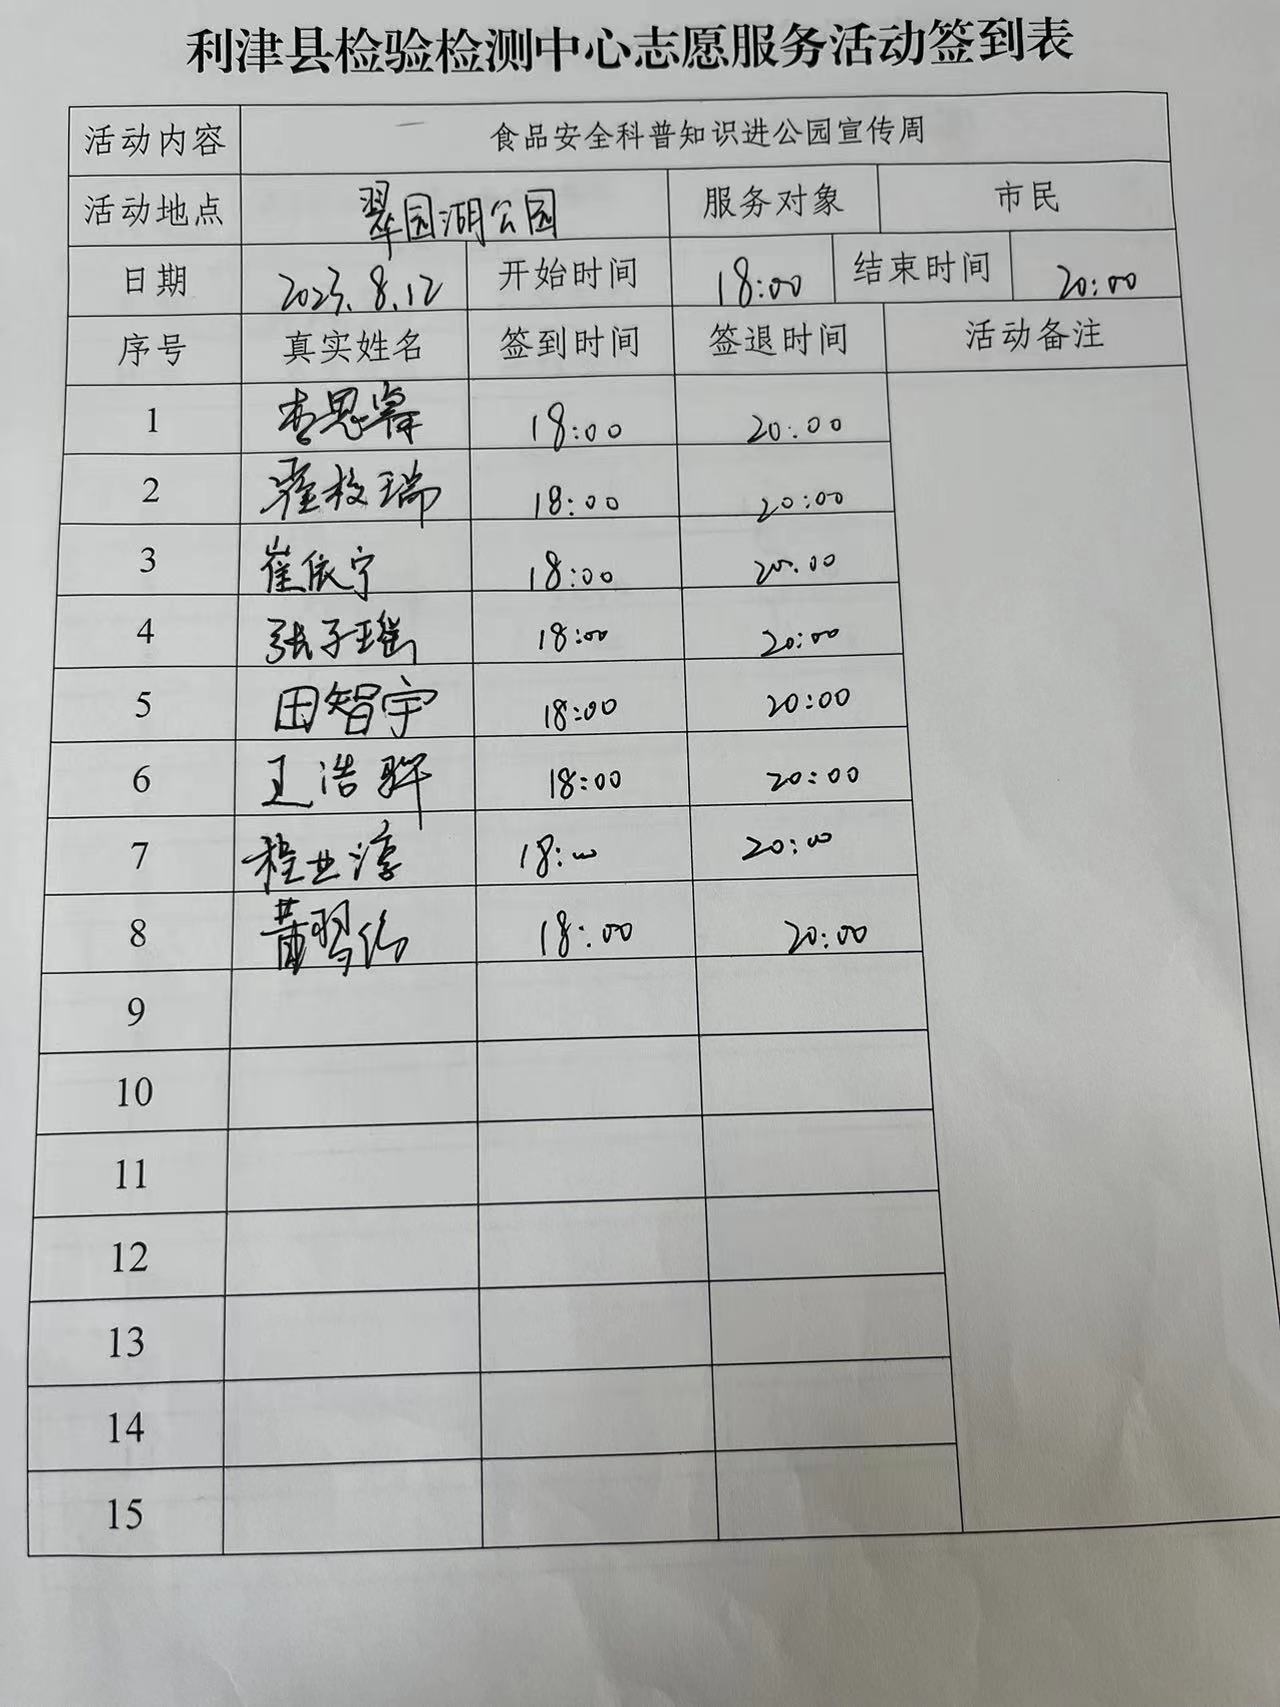 利津县检验检测中心志愿服务活动签到表
活动内容 食品安全科普知识进公园宣传周
活动地点 翠园湖公园 服务对象 市民
日期 2023.8.12 开始时间 18:00 结束时间 20:00
序号 真实姓名 签到时间 签退时间 活动备注
1 李思 18:00 20:00
2 瑞 18:00 20:00
3 崔依宁 18:00 20:00
4 张子瑶 18:00 20:00
5 田智宇 18:00 20:00
6 王浩骅 18:00 20:00
7 程业淳 18:00 20:00
8 黄 18:00 20:00
9
10
11
12
13
14
15